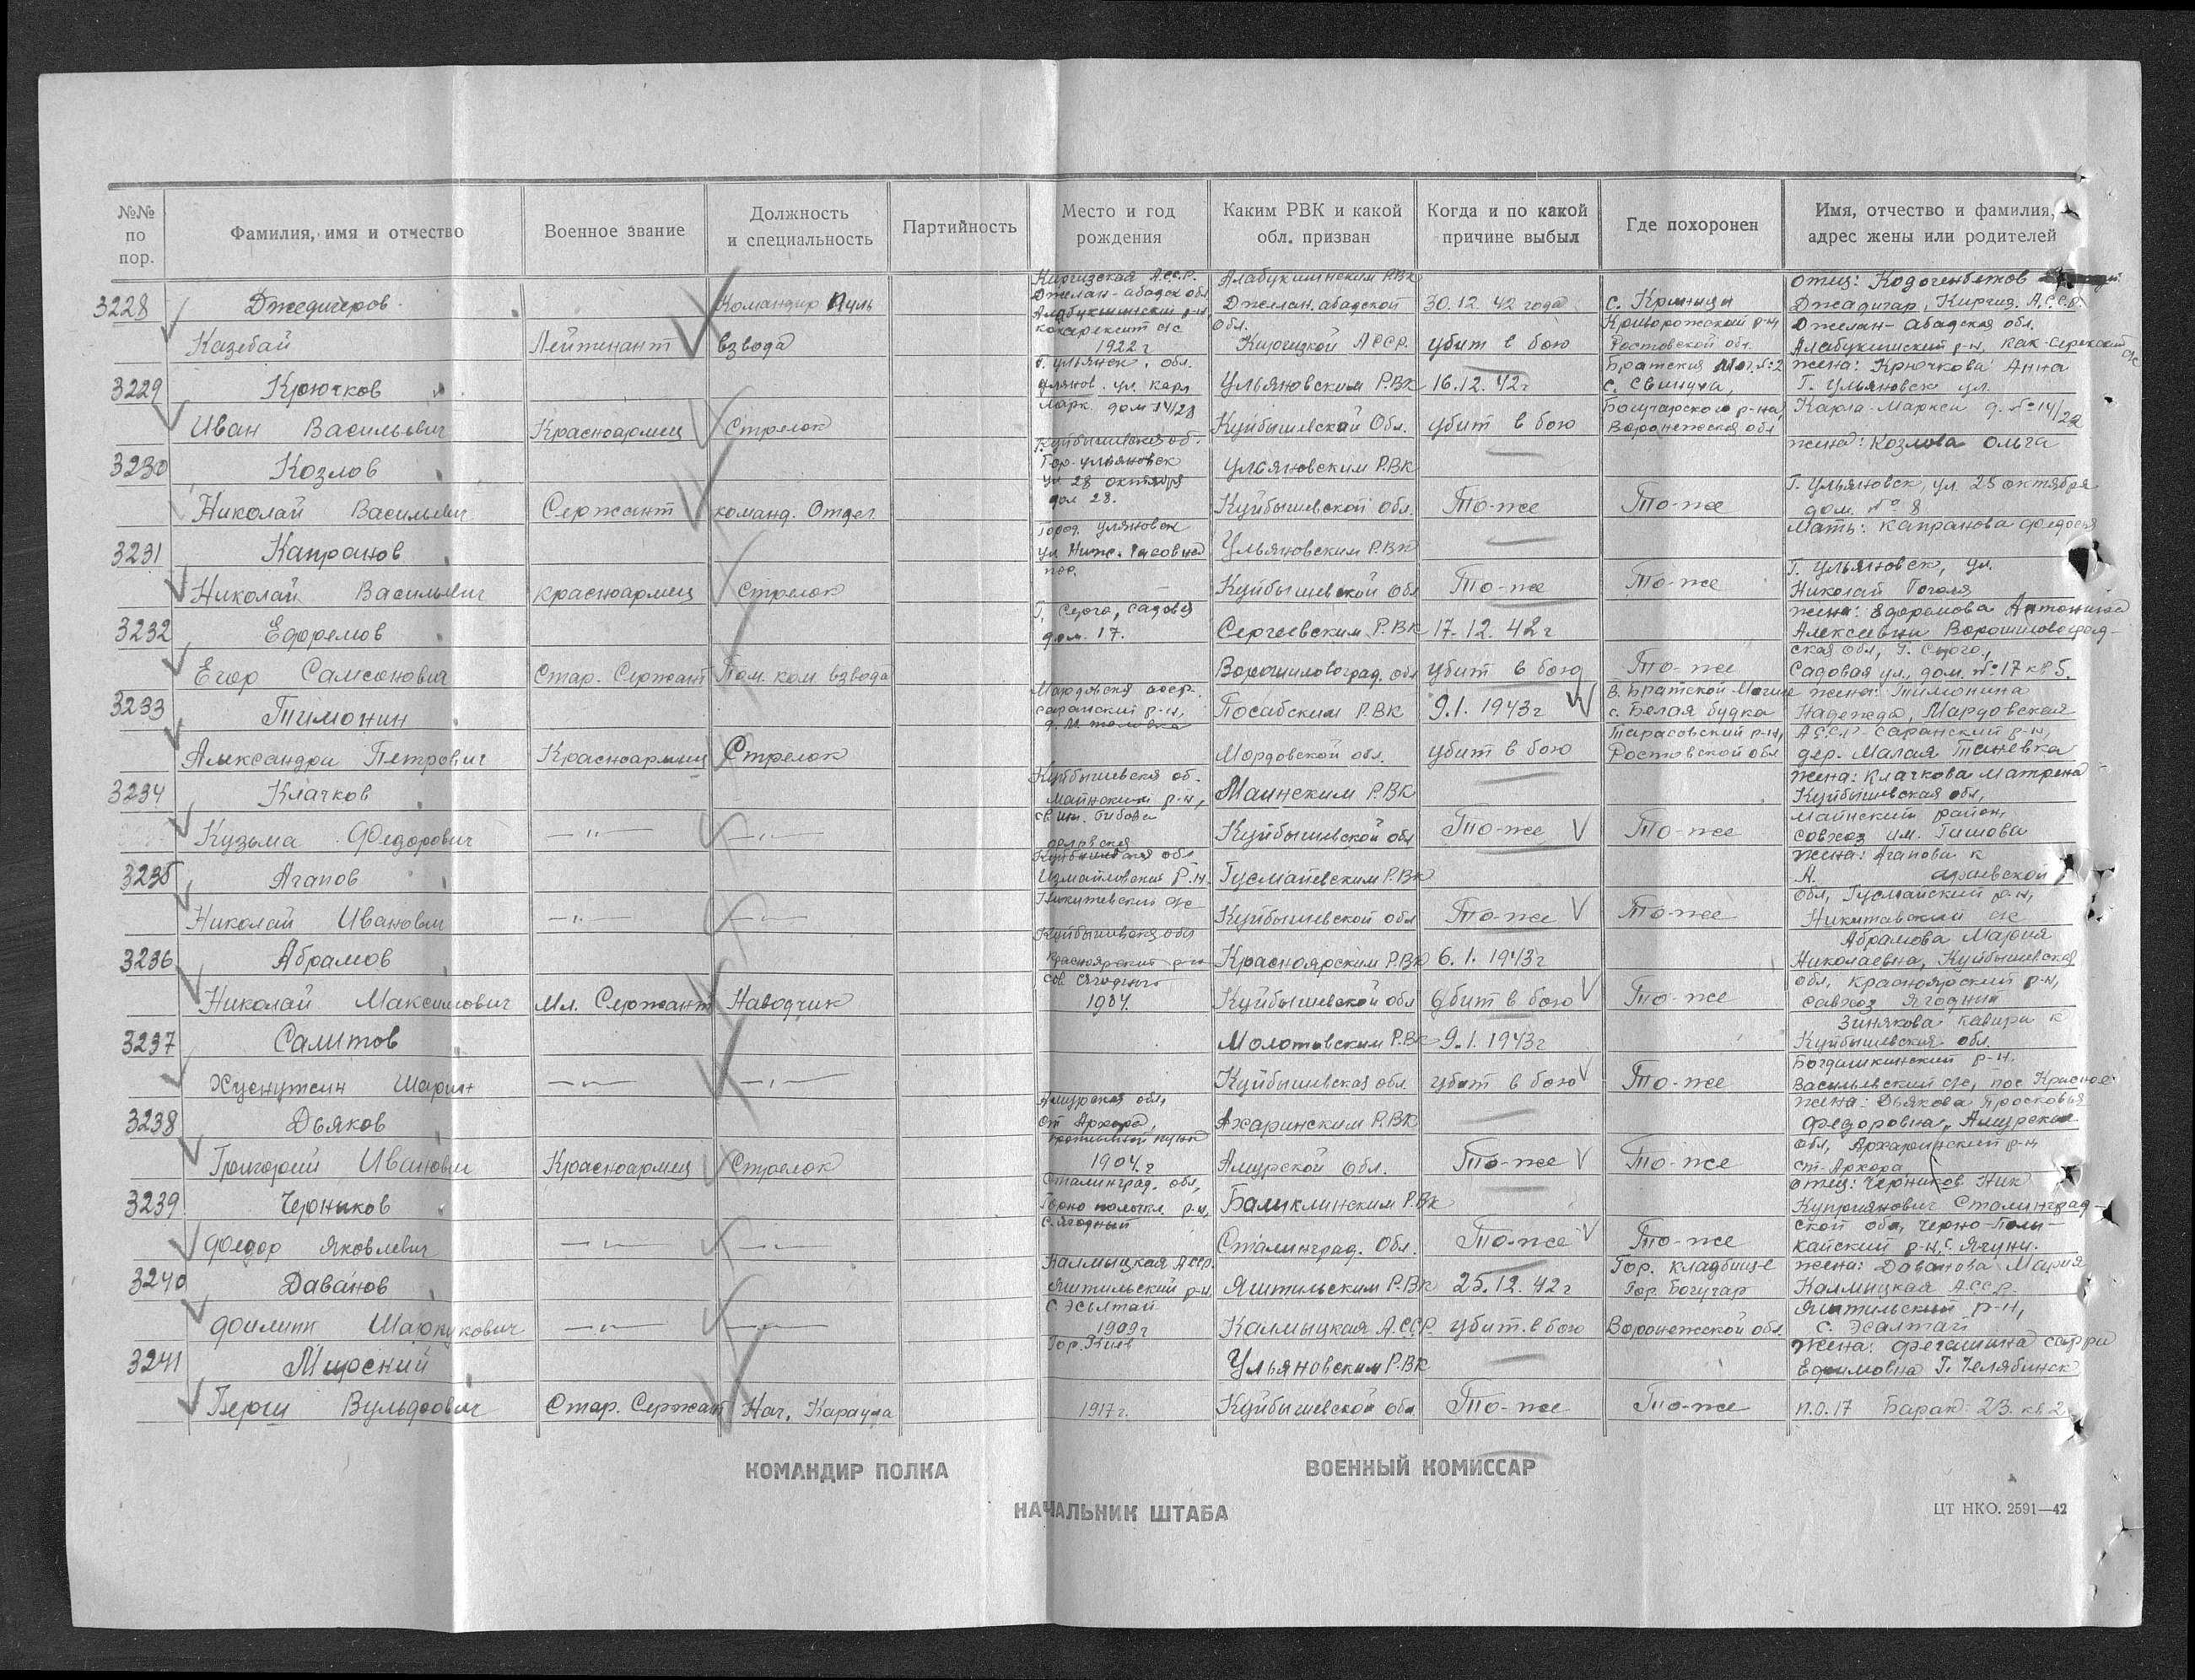 №№ по пор.
Фамилия, имя и отчество
Военное звание
Должность и специальность
Партийность
Место и год рождения
Каким РВК и какой обл. призван
Когда и по какой причине выбыл
Где похоронен
Имя, отчество и фамилия, адрес жены или родителей
3228 Джедигеров Казебай
Лейтенант
Командир Пуль взвода
Киргизская АССР. Джелал-абадск обл
1922 г
Алабукинским РВК Джелал.абадской обл. Киргизкой АССР.
30.12.42 года убит в бою
с. Криница Криворожский р-н Ростовской обл.
отец: Кодогенбетов Джадигар, Киргиз. А.С.С.Р. Джелал-Абадская обл.
3229 Крючков Иван Васильевич
Красноармеец
Стрелок
Г. Ульянск. обл. ульянов. ул. Карл Марк. дом 14/28
Ульяновским РВК Куйбышевской Обл.
16.12.42г убит в бою
Братская Мог.№2 с. Свинуха, Богучарского р-на Воронежская обл
жена: Крючкова Анна Г. Ульяновск ул. Карла-Маркса д. №14/28
3230 Козлов Николай Васильевич
Сержант
команд. Отдел.
Куйбышевская об. Гор. Ульяновск ул 28 октября дом 28.
Ульяновским РВК Куйбышевской обл.
То-же
То-же
жена: Козлова Ольга Г. Ульяновск, ул. 25 октября дом. № 8
3231 Капранов Николай Васильевич
красноармеец
Стрелок
Город. Ульяновск
Ульяновским РВК Куйбышевской обл
То-же
То-же
Мать: Капранова Федосья Г. Ульяновск, ул. Николай Гоголя
3232 Ефремов Егор Самсонович
Стар. Сержант
Пом. ком. взвода
Г. Серго, Садовая дом. 17.
Сергеевским РВК Ворошиловоград. обл
17.12.42г убит в бою
То-же
жена: Ефремова Антонина Алексеевна Ворошиловоградская обл, Г. Серго, Садовая ул., дом. №17 кв 5.
3233 Тимонин Александр Петрович
Красноармеец
Стрелок
Мардовская асср. саранский р-н,
Посабским РВК Мордовской обл.
9.1.1943г убит в бою
В. Братской Могиле с. Белая будка Тарасовский р-н, Ростовской обл
жена: Тимонина Надежда, Мардовская АССР саранский р-н, дер. Малая Танеевка
3234 Клачков Кузьма Федорович
—"—
—"—
Куйбышевская об. Майнский р-н,
Маинским РВК Куйбышевской обл
То-же
То-же
жена: Клачкова Матрена Куйбышевская обл, майнский район, совхоз им. Гимова
3235 Агапов Николай Иванович
—"—
—"—
Куйбышевская обл Измайловский р-н. Никитевский с/с
Гусмаевским РВК Куйбышевской обл
То-же
То-же
жена: Агапова к
обл, Гусмайский р-н, Никитавский с/с
3236 Абрамов Николай Максимович
Мл. Сержант
Наводчик
Куйбышевская обл Красноярский р-н сов. Ягодный 1904.
Красноярским РВК Куйбышевской обл
6.1.1943г убит в бою
То-же
Абрамова Мария Николаевна, Куйбышевская обл, Красноярский р-н, савхоз Ягодный
3237 Салитов Хуснутдин Шарип
—"—
—"—
Молотовским РВК Куйбышевская обл
9.1.1943г убит в бою
То-же
Зинякова Кавири к Куйбышевская обл. Богдашкинский р-н. Васильевский с/с, пос Красное
3238 Дьяков Григорий Иванович
Красноармеец
Стрелок
Амурская обл, ст Архара, 1904.г
Ахаринским РВК Амурской обл.
То-же
То-же
жена: Дьякова Просковья Федоровна, Амурская обл, Архаринский р-н ст-Архора
3239 Черников Федор Яковлевич
—"—
—"—
Сталинград. обл, с. Ягодный
Балыклинским РВК Сталинград. Обл.
То-же
То-же
отец: Черников Ник Куприянович Сталинградской обл, Черно-Полыкайский р-н,
3240 Даванов Филипп Шарпукович
—"—
—"—
Калмыцкая Асср. Яштильский р-н с. Эсылтай 1909г
Яштильским РВК Калмыцкая А.С.С.Р.
25.12.42г убит.в бою
Гор. кладбище Гор. Богучар Воронежской обл.
жена: Даванова Мария Калмыцкая АССР. Яштильский р-н, с. Эсалтай
3241 Мирский Берги Вульфович
Стар. Сержант
Нач. Караула
Гор. Киев 1917г.
Ульяновским РВК Куйбышевской обл
То-же
То-же
Жена: Фегашина сарра Ефимовна Г. Челябинск п.о.17 Барак 23. кв 2
КОМАНДИР ПОЛКА
ВОЕННЫЙ КОМИССАР
НАЧАЛЬНИК ШТАБА
ЦТ НКО. 2591—42